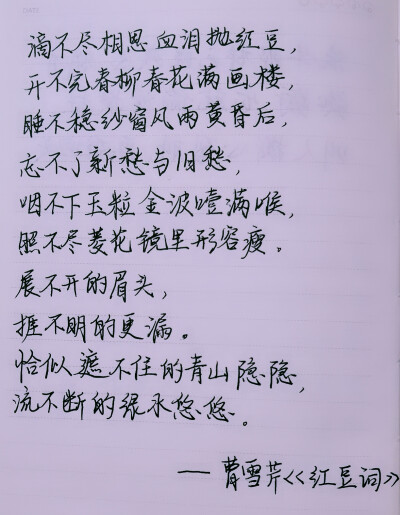 滴不尽相思血泪抛红豆，
开不完春柳春花满画楼，
睡不稳纱窗风雨黄昏后，
忘不了新愁与旧愁，
咽不下玉粒金波噎满喉，
照不尽菱花镜里形容瘦。
展不开的眉头，
捱不明的更漏。
恰似遮不住的青山隐隐，
流不断的绿水悠悠。
——曹雪芹《红豆词》